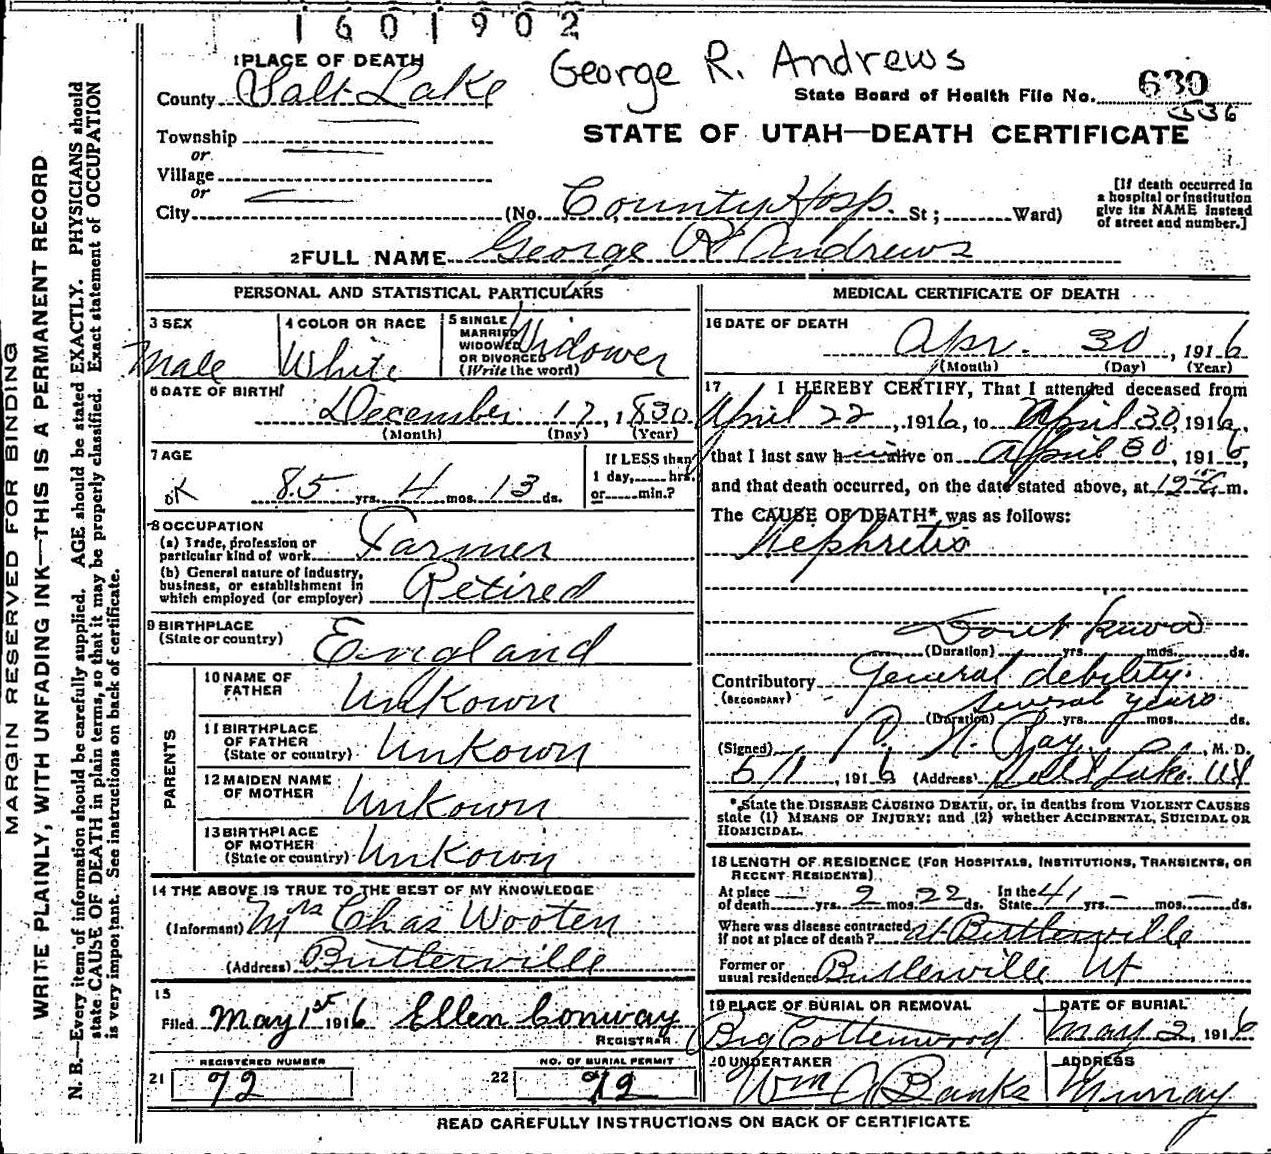 1601902
George R. Andrews
1 PLACE OF DEATH
County Salt Lake
State Board of Health File No. 630
536
STATE OF UTAH—DEATH CERTIFICATE
Township
or
Village
or
City
(No. County Hosp. St; Ward)
[If death occurred in
a hospital or institution
give its NAME instead
of street and number.]
2 FULL NAME George R Andrews
PERSONAL AND STATISTICAL PARTICULARS
3 SEX
Male
4 COLOR OR RACE
White
5 SINGLE
MARRIED
WIDOWED
OR DIVORCED
(Write the word)
Widower
6 DATE OF BIRTH
December 17, 1830
(Month) (Day) (Year)
7 AGE
OK 85 yrs. 4 mos. 13 ds.
If LESS than
1 day, hrs.
or min.?
8 OCCUPATION
(a) Trade, profession or
particular kind of work Farmer
(b) General nature of industry,
business, or establishment in
which employed (or employer) Retired
9 BIRTHPLACE
(State or country) England
PARENTS
10 NAME OF
FATHER Unkown
11 BIRTHPLACE
OF FATHER
(State or country) Unkown
12 MAIDEN NAME
OF MOTHER Unkown
13 BIRTHPLACE
OF MOTHER
(State or country) Unkown
14 THE ABOVE IS TRUE TO THE BEST OF MY KNOWLEDGE
(Informant) Mrs Chas Wooten
(Address) Butlerville
15
Filed May 1st 1916 Ellen Conway
REGISTRAR
REGISTERED NUMBER
21 72
NO. OF BURIAL PERMIT
22 72
MEDICAL CERTIFICATE OF DEATH
16 DATE OF DEATH
Apr. 30, 1916
(Month) (Day) (Year)
17 I HEREBY CERTIFY, That I attended deceased from
April 22, 1916, to April 30, 1916,
that I last saw him alive on April 30, 1916,
and that death occurred, on the date stated above, at 12 m.
The CAUSE OF DEATH* was as follows:
Nephretis
Dont know
(Duration) yrs. mos. ds.
Contributory General debility.
(SECONDARY) Several years
(Duration) yrs. mos. ds.
(Signed) Ray, M. D.
5/1, 1916 (Address) Salt Lake
*State the DISEASE CAUSING DEATH, or, in deaths from VIOLENT CAUSES
state (1) MEANS OF INJURY; and (2) whether ACCIDENTAL, SUICIDAL OR
HOMICIDAL.
18 LENGTH OF RESIDENCE (FOR HOSPITALS, INSTITUTIONS, TRANSIENTS, OR
RECENT RESIDENTS)
At place
of death — yrs. 2 mos. 22 ds. In the
State 41 yrs. — mos. — ds.
Where was disease contracted
if not at place of death? at Butlerville
Former or
usual residence Butlerville Ut
19 PLACE OF BURIAL OR REMOVAL
Big Cottenwood
DATE OF BURIAL
May 2, 1916
20 UNDERTAKER
Wm A Banks
ADDRESS
Murray
READ CAREFULLY INSTRUCTIONS ON BACK OF CERTIFICATE
MARGIN RESERVED FOR BINDING
WRITE PLAINLY, WITH UNFADING INK—THIS IS A PERMANENT RECORD
N. B.—Every item of information should be carefully supplied. AGE should be stated EXACTLY. PHYSICIANS should
state CAUSE OF DEATH in plain terms, so that it may be properly classified. Exact statement of OCCUPATION
is very important. See instructions on back of certificate.